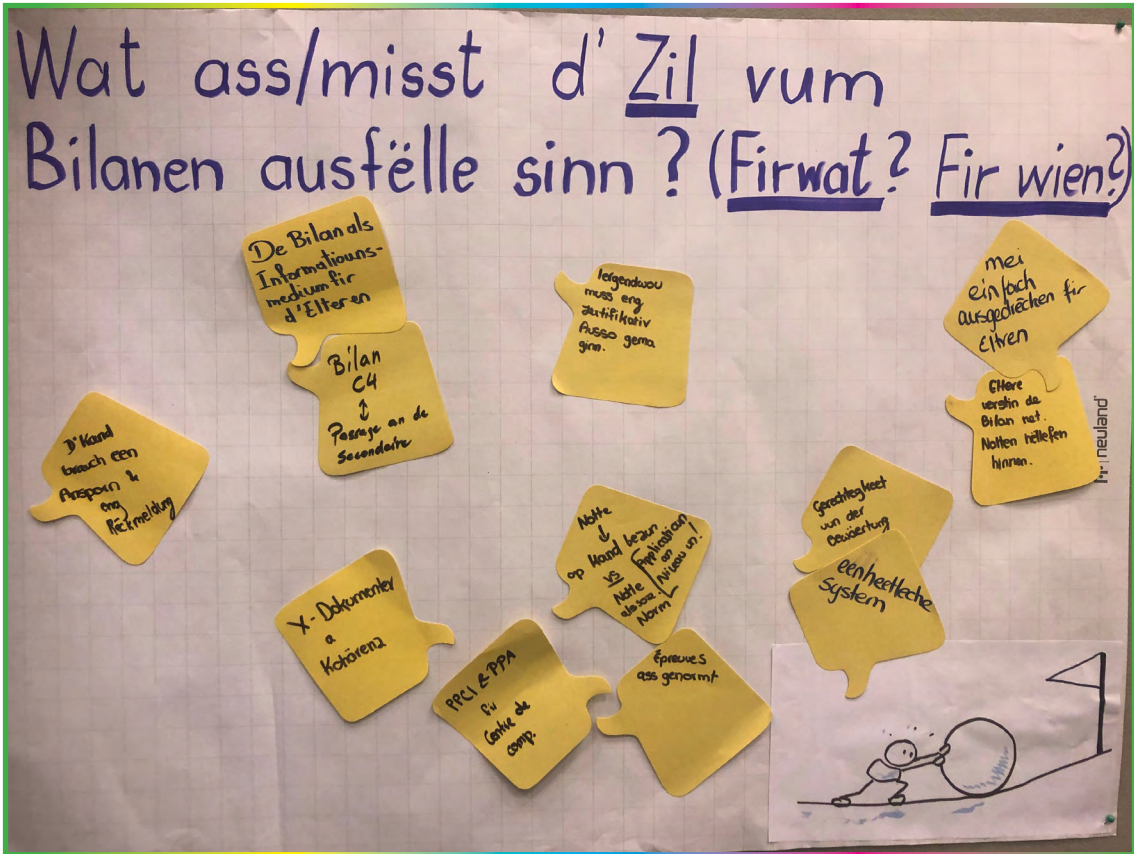 Wat ass/misst d' Zil vum
Bilanen ausfëlle sinn ? (Firwat? Fir wien?)
De Bilan als
Informatiouns-
medium fir
d'Elteren
Bilan
C4
↕
Passage an de
Secondaire
Iergendwou
muss eng
Justifikativ
Ausso gema
ginn.
mei
einfach
ausgedrécken fir
Eltren
Eltere
verstin de
Bilan net.
Notten hëllefen
hinnen.
neuland
D'Kand
brauch een
Ansporn &
eng
Réckmeldung
Notte
↓
op Kand bezun
vs
Notte
als soz.
Norm
Application
an
Niveau un!
Gerechtegkeet
vun der
Bewäertung
eenheetleche
System
X-Dokumenter
a
Kohärenz
PPCI & PPA
fir
Centre de
comp.
Épreuves
ass genormt